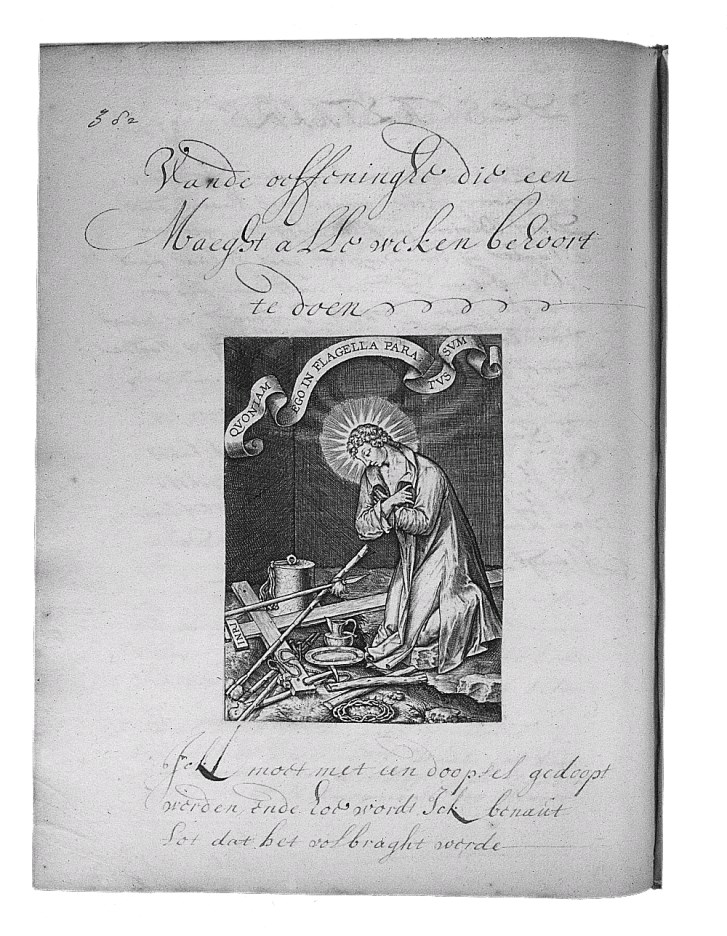 382
Vande oeffeninghe die een
Maeght alle weken behoort
te doen
QVONIAM EGO IN FLAGELLA PARATVS SVM
INRI
Ick moet met een doopsel gedoopt
worden, Ende hoe wordt Ick benaut
tot dat het volbraght werde